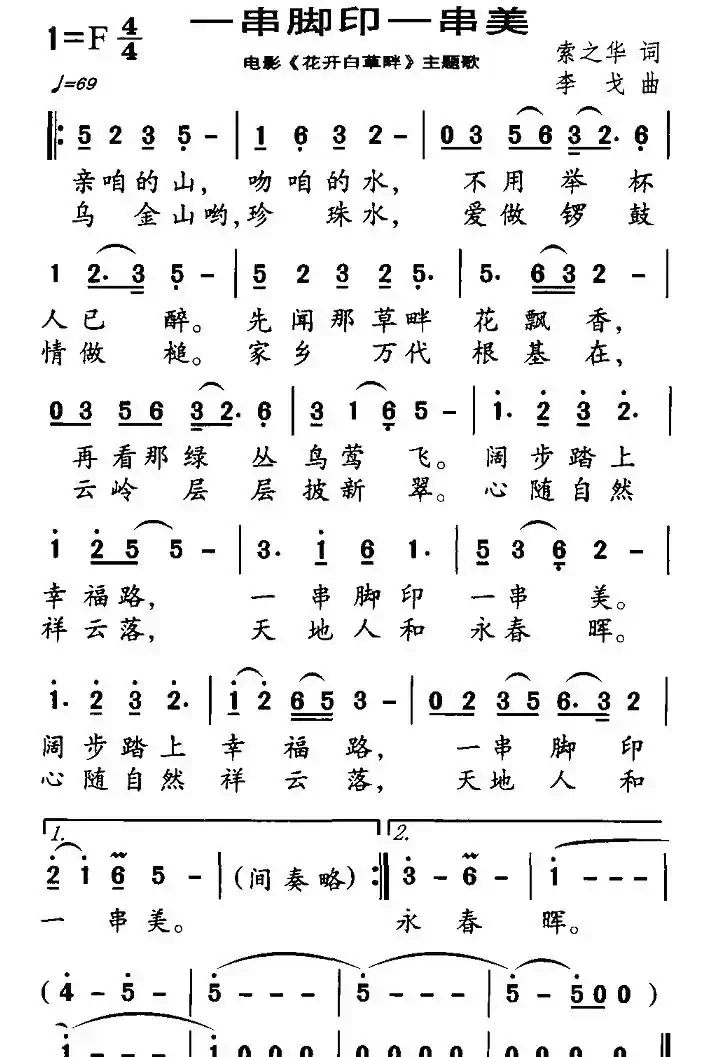 一串脚印一串美
1=F 4/4
电影《花开白草畔》主题歌
索之华 词
♩=69
李 戈 曲
𝄆 5 2 3 5 - | 1 6 3 2 - | 0 3 5 6 3 2· 6 |
亲咱的山, 吻咱的水, 不用举杯
乌金山哟,珍珠水, 爱做锣鼓
1 2· 3 5 - | 5 2 3 2 5· | 5· 6 3 2 - |
人已醉。先闻那草畔花飘香,
情做槌。家乡万代根基在,
0 3 5 6 3 2· 6 | 3 1 6 5 - | 1· 2 3 2· |
再看那绿丛鸟莺飞。阔步踏上
云岭层层披新翠。心随自然
1 2 5 5 - | 3· 1 6 1· | 5 3 6 2 - |
幸福路, 一串脚印一串美。
祥云落, 天地人和永春晖。
1· 2 3 2· | 1 2 6 5 3 - | 0 2 3 5 6· 3 2 |
阔步踏上幸福路, 一串脚印
心随自然祥云落, 天地人和
1. 2.
2 1 6 5 - | (间奏略) :‖ 3 - 6 - | 1 - - - |
一串美。 永春晖。
(4 - 5 - | 5 - - - | 5 - - - | 5 - 5 0 0)
1 - - - | 1 - - - | 1 0 0 0 | 0 0 0 0 ‖